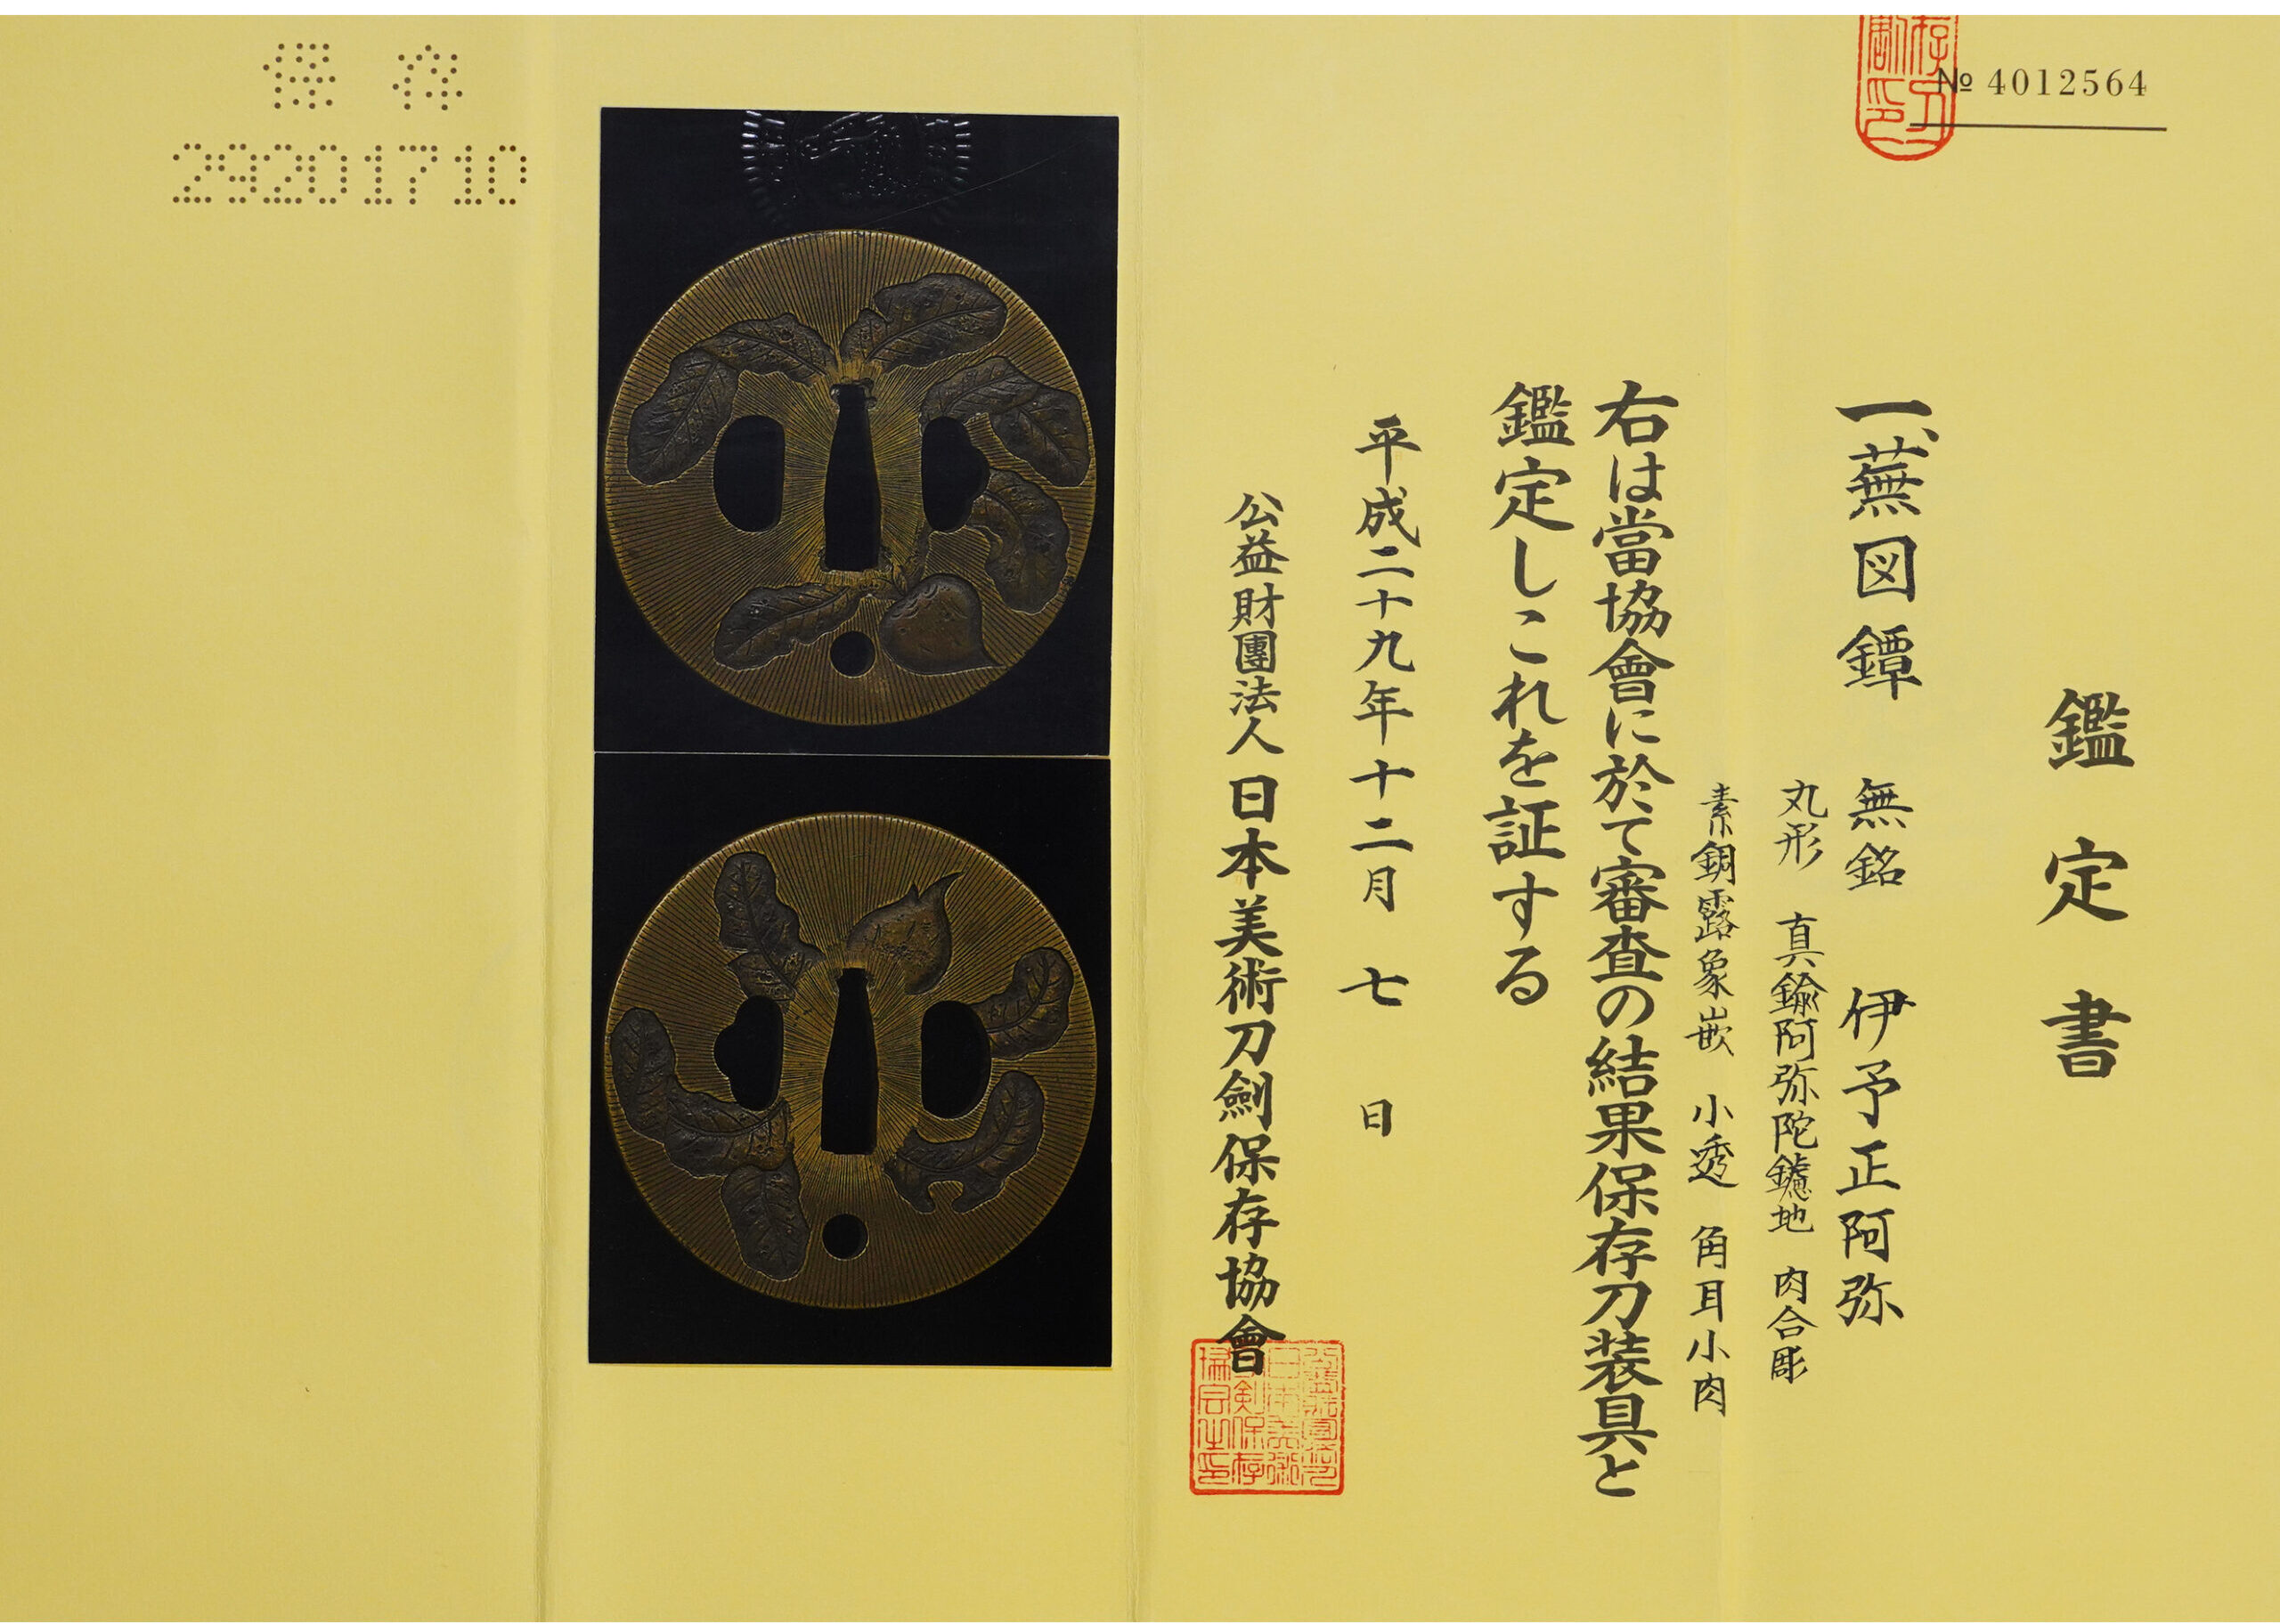 № 4012564
鑑定書
一、蕪図鐔 無銘 伊予正阿弥
丸形 真鍮阿弥陀鑢地 肉合彫
素銅露象嵌 小透 角耳小肉
右は當協會に於て審査の結果保存刀装具と
鑑定しこれを証する
平成二十九年十二月七日
公益財團法人日本美術刀劍保存協會
保存
29201710